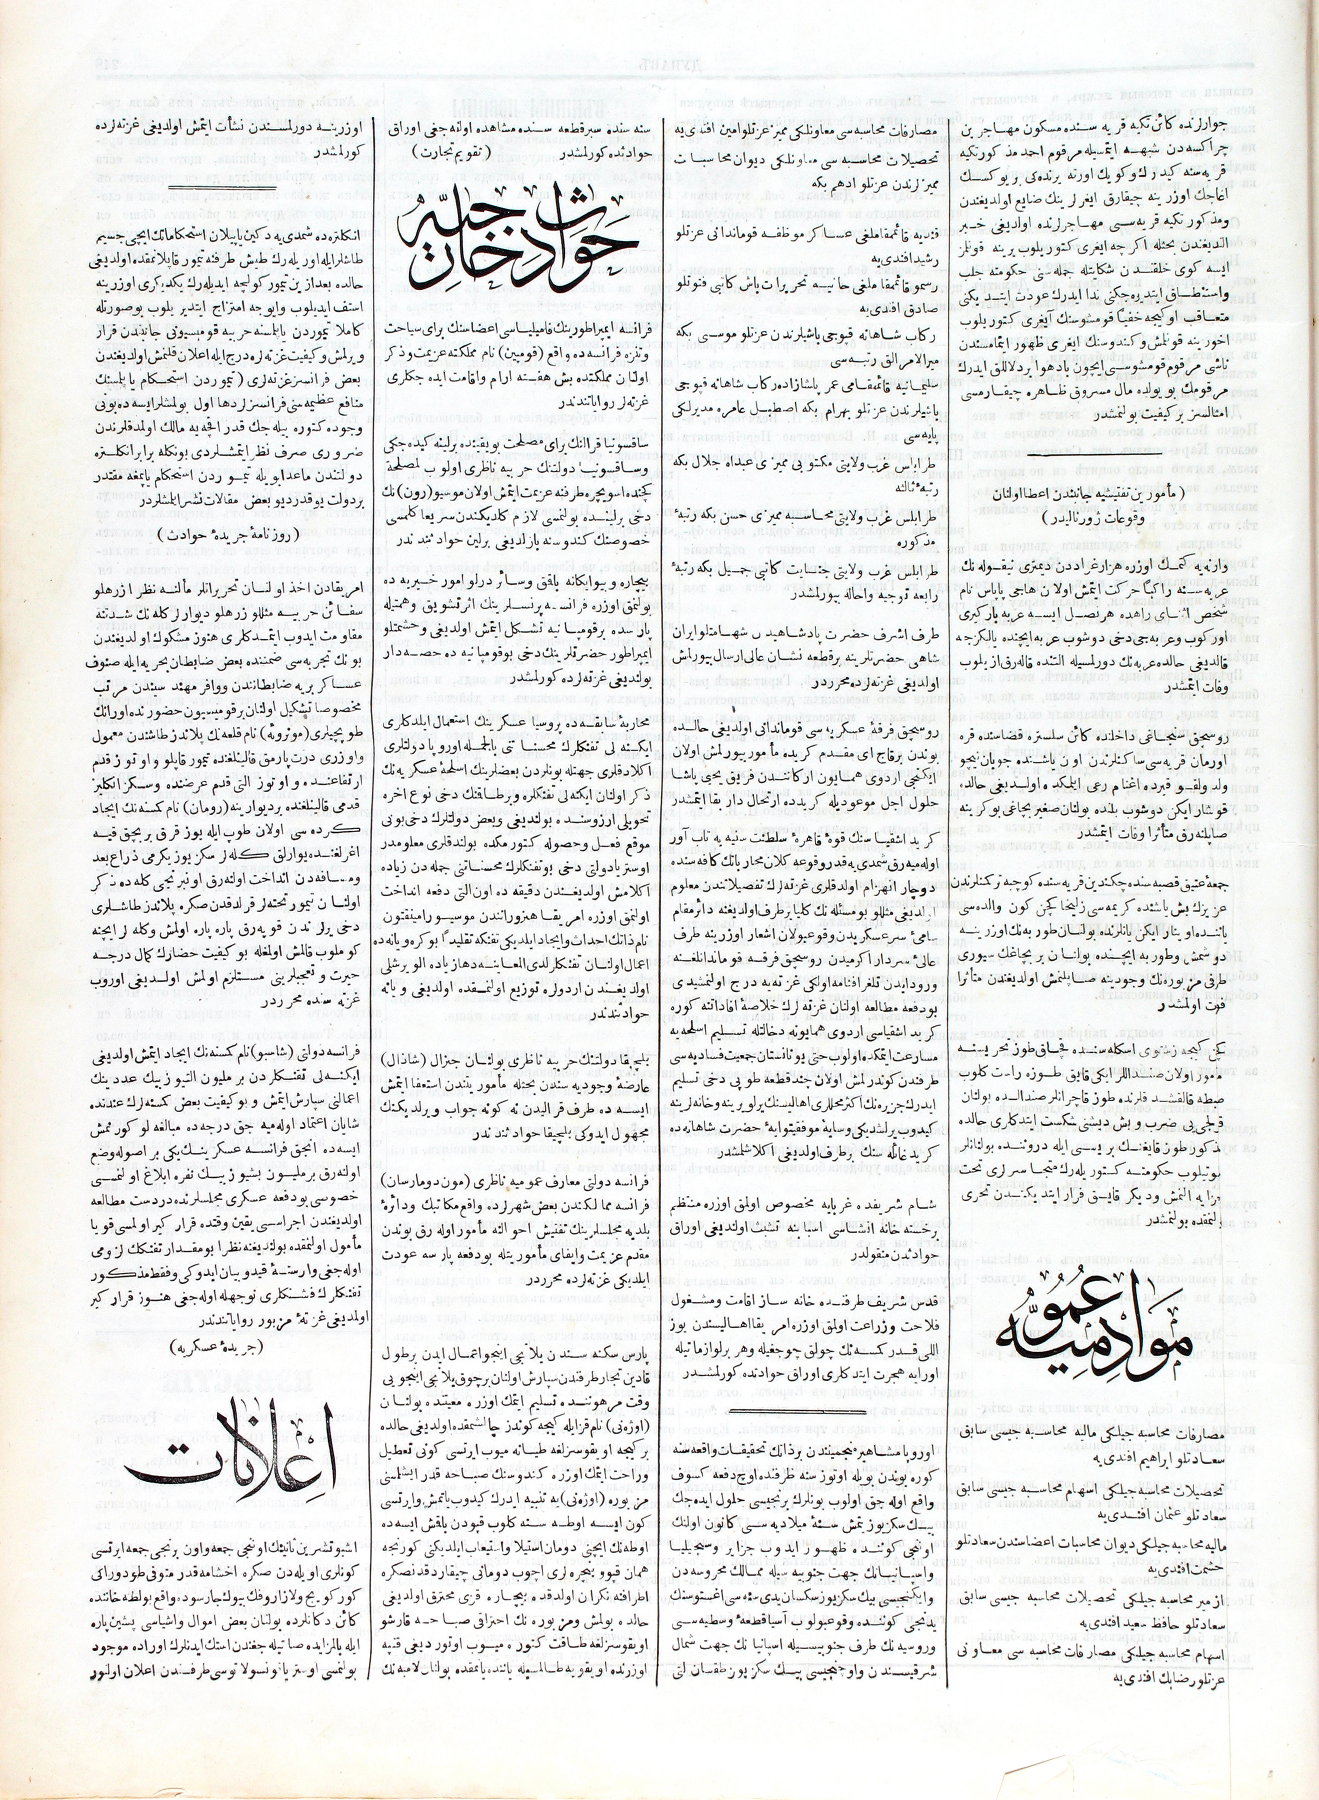 جوارلرنده كائن تكيه قريه سنده مسكون مهاجرين
چراكسه دن شبهه ايتمسيله مرقوم احمد مذكور تكيه
قريه سنه كيدرك وكويك اورته يرنده كى بر يوكسك
اغاجك اوزرينه چيقارق ايغرلرينك ضايع اولديغندن
ومذكور تكيه قريه سى مهاجرلرنده اولديغى خبر
الديغندن بحثله اكرچه ايغرى كتوريلوب يرينه قونلز
ايسه كوى خلقندن شكايتله جمله سنى حكومته جلب
واستنطاق ايتديره جكنى ندا ايدرك عودت ايتديكنى
متعاقب اوكيجه خفيًا قومشوسنك آيغرى كتوريلوب
اخورينه قونلش وكندوسنك ايغرى ظهور ايتمامسندن
ناشى مرقوم قومشوسى ايچون يادهوا بر دلاللق ايدرك
مرقومك بويولده مال مسروق ظاهره چيقارمسى
امثالسز بر كيفيت بولنمشدر
(مأمورين تفتيشيه جانبندن اعطا اولنان
وقوعات ژورناليدر)
وارنه يه كتمك اوزره هزارغراددن ديمترى نيقوله نك
عربه سنه راكبًا حركت ايتمش اولان هاجى پاپاس نام
شخص اثناى راهده هرنصل ايسه عربه باركيرى
اوركوب وعربه جى دخى دوشوب عربه ايچنده يالكزجه
قالديغى حالده عربه نك دورلمسيله التنده قاله رق ازيلوب
وفات ايتمشدر
روسچق سنجاغى داخلنده كائن سلستره قضاسنده قره
اورمان قريه سى ساكنلرندن اون ياشنده جوبان نيچو
ولد ولقو قيرده اغنام رعى ايتمكده اولديغى حالده
قوشار ايكن دوشوب بلنده بولنان صغير بچاغى بوكرينه
صاپلنه رق متأثرًا وفات ايتمشدر
جمعهٔ عتيق قصبه سنده چكندين قريه سنده كوجبه تركنلرندن
عزيزك بش ياشنده كريمه سى زليخا كچن كون والده سى
ياننده اوينار ايكن يانلرنده بولنان طوربه نك اوزرينه
دوشمش وطوربه ايچنده بولنان بر بچاغك سيورى
طرفى مزبوره نك وجودينه صاپلنمش اولديغندن متأثرا
فوت اولمشدر
كچن كيجه زشتوى اسكله سنده قچاق طوز تحريسنه
مأمور اولان صندالر ايكى قايق طوزه راست كلوب
ضبطه قالقشدقلرنده طوز قاچرانلر صندالده بولنان
قرلجى يى ضرب وبش ديشنى شكست ايتدكلرى حالده
مذكور طوز قايغنك بريسى ايله دروننده بولنانلر
طوتيلوب حكومته كتوريله رك منجاسرلرى تحت
جزايه النمش وديكر قايق فرار ايتديكندن تحرى
اولنمقده بولنمشدر
مواد عموميه
مصارفات محاسبه جيلكى ماليه محاسبه جيسى سابق
سعادتلو ابراهيم افندى يه
تحصيلات محاسبه جيلكى اسهام محاسبه جيسى سابق
سعادتلو عثمان افندى يه
ماليه محاسبه جيلكى ديوان محاسبات اعضاسندن سعادتلو
حشمت افندى يه
ازمير محاسبه جيلكى تحصيلات محاسبه جيسى سابق
سعادتلو حافظ سعيد افندى يه
اسهام محاسبه جيلكى مصارفات محاسبه سى معاونى
عزتلو رضا بك افندى يه
مصارفات محاسبه سى معاونلكى مميز عزتلو امين افندى يه
تحصيلات محاسبه سى معاونلكى ديوان محاسبات
مميزلرندن عزتلو ادهم بكه
قنديه قائمقاملغى عساكر موظفه قوماندانى عزتلو
رشيد افندى يه
رسمو قائمقاملغى حانيه تحريرات باش كاتبى فتوتلو
صادق افندى يه
ركاب شاهانه قپوجى باشيلرندن عزتلو موسى بكه
ميرالامرالق رتبه سى
سليمانيه قائمقامى عمر پاشازاده ركاب شاهانه قپوجى
باشيلرندن عزتلو بهرام بكه اصطبل عامره مديرلكى
پايه سى
طرابلس غرب ولايتى مكتوبى مميزى عبدالله جلال بكه
رتبهٔ ثالثه
طرابلس غرب ولايتى محاسبه مميزى حسن بكه رتبهٔ
مذكوره
طرابلس غرب ولايتى جنايت كاتبى جميل بكه رتبهٔ
رابعه توجيه واحاله بيورلمشدر
طرف اشرف حضرت پادشاهيدن شهامتلو ايران
شاهى حضرتلرينه برقطعه نشان عالى ارسال بيورلمش
اولديغى غزته لرده محرردر
روسچق فرقهٔ عسكريه سى قوماندانى اولديغى حالده
بوندن برقاچ اى مقدم كريده مأمور بيورلمش اولان
ايكنجى اردوى همايون اركانندن فريق يحيى پاشا
حلول اجل موعوديله كريدده ارتحال دار بقا ايتمشدر
كريد اشقياسنك قوهٔ قاهرهٔ سلطنت سنيه يه تاب آور
اوله ميه رق شمدى يه قدر وقوعه كلان محارباتك كافه سنده
دوچار انهزام اولدقلرى غزته لرك تفصيلاتندن معلوم
اولديغى مثللو بومسئله نك كليا برطرف اولديغنه دائر مقام
سامئ سرعسكريدن وقوعبولان اشعار اوزرينه طرف
عالئ سردار اكرميدن روسچق فرقه قوماندانلغنه
ورود ايدن تلغرافنامه اولكى غزته يه درج اولنمشيدى
بودفعه مطالعه اولنان غزته لرك خلاصهٔ افاداتنه كوره
كريد اشقياسى اردوى همايونه دخالتله تسليم اسلحه يه
مسارعت ايتمكده اولوب حتى يونانستان جمعيت فساديه سى
طرفندن كوندرلمش اولان چند قطعه طوپى دخى تسليم
ايدرك جزيره نك اكثر محللرى اهاليسنك يرلو يرينه وخانه لرينه
كيدوب يرلشديكى وسايهٔ موفقيتوايهٔ حضرت شاهانه ده
كريد غائله سنك برطرف اولديغى اكلاشلمشدر
شام شريفده غربايه مخصوص اولمق اوزره منتظم
برخسته خانه انشاسى اسبابنه تشبث اولنديغى اوراق
حوادثدن منقولدر
قدس شريف طرفنده خانه ساز اقامت ومشغول
فلاحت وزراعت اولمق اوزره امريقا اهاليسندن يوز
اللى قدر كسه نك چولق چوجغيله وهر برلوازماتيله
اورايه هجرت ايتدكلرى اوراق حوادثده كورلمشدر
اوروپا مشاهير منجميندن برذاتك تحقيقات واقعه سنه
كوره بوندن بويله اوتوز سنه ظرفنده اوچ دفعه كسوف
واقع اوله جق اولوب بونلرك برنجيسى حلول ايده جك
بيك سكزيوز يتمش سنهٔ ميلاديه سى كانون اولنك
اونجى كوننده ظهور ايدوب جزاير وسيجيليا
واسپانيانك جهت جنوبيه سيله ممالك محروسه دن
وايكنجيسى بيك سكزيوز سكسان يدى سنه سى اغستوسنك
يدنجى كوننده وقوعبولوب آسيا قطعهٔ وسطيه سى
وروسيه نك طرف جنوبيسيله اسپانيانك جهت شمال
شرقيسندن واوچنجيسى بيك سكزيوز طقسان التى
سنه سنده سيرقطعه سنده مشاهده اولنه جغى اوراق
حوادثده كورلمشدر (تقويم تجارت)
حوادث خارجيه
فرانسه ايمپراطورينك فاميلياسى اعضاسنك براى سياحت
وتنزه فرانسه ده واقع (قومپين) نام مملكته عزيمت وذكر
اولنان مملكتده بش هفته ارام واقامت ايده جكلرى
غزته لر روايتندندر
ساقسونيا قرالنك براى مصلحت بويقينده برلينه كيده جكى
وساقسونيا دولتنك حربيه ناظرى اولوب لمصلحة
كچنده اسويچره طرفنه عزيمت ايتمش اولان موسيو (رون) نك
دخى برلينده بولنمسى لازم كلديكندن سريعا كلمسى
خصوصنك كندوسنه يازلديغى برلين حوادثندندر
بيچاره وبيوايكانه باقق وسائر درلو امور خيريه ده
بولنمق اوزره فرانسه پرنسلرينك اثر تشويق وهمتيله
پارسده برقومپانيه تشكل ايتمش اولديغى وحشمتلو
ايمپراطور حضرتلرينك دخى بوقومپانيه ده حصه دار
بولنديغى غزته لرده كورلمشدر
محاربهٔ سابقه ده پروسيا عسكرينك استعمال ايلدكلرى
ايكنه لى تفنكلرك محسناتنى بالجمله اوروپا دولتلرى
اكلادقلرى جهتله بونلردن بعضلرينك اسلحهٔ عسكريه نك
ذكر اولنان ايكنه لى تفنكلره وبرطاقنك دخى نوع اخره
تحويلى ارزوسنده بولنديغى وبعض دولتلرك دخى بونى
موقع فعل وحصوله كتورمكده بولندقلرى معلومدر
اوستريا دولتى دخى بوتفنكلرك محسناتنى جمله دن زياده
اكلامش اولديغندن دقيقه ده اون التى دفعه انداخت
اولنمق اوزره امريقا هنرورانندن موسيو رامينقتون
نام ذاتك احداث وايجاد ايلديكى تفنكه تقليدًا بوكره ويانه ده
اعمال اولنان تفنكلر لدى المعاينه دها زياده الويرشلى
اولديغندن اردولره توزيع اولنمقده اولديغى ويانه
حوادثندندر
بلچيقا دولتنك حربيه ناظرى بولنان جنرال (شاذال)
عارضهٔ وجوديه سندن بحثله مأموريتندن استعفا ايتمش
ايسه ده طرف قراليدن نه كونه جواب ويرلديكنك
مجهول ايدوكى بلچيقا حوادثندندر
فرانسه دولتى معارف عموميه ناظرى (مون دومارسان)
فرانسه ممالكندن بعض شهرلرده واقع مكاتبك ودائرهٔ
بلديه مجلسلرينك تفتيش احوالنه مأمور اوله رق بوندن
مقدم عزيمت وايفاى مأموريتله بودفعه پارسه عودت
ايلديكى غزته لرده محرردر
پارس سكنه سندن يلانجى اينجو اعمال ايدن برطول
قادين تجار طرفندن سپارش اولنان برچوق يلانجى اينجويى
وقت مرهوننده تسليم ايتمك اوزره معيتنده بولنان
(اوژنى) نام قزايله كيجه كوندز چالشمقده اولديغى حالده
بركيجه اويقوسزلغه طيانه ميوب ايرتسى كونى تعطيل
وراحت ايتمك اوزره كندوسنك صباحه قدر ايشلمنى
مزبوره (اوژنى) يه تنبيه ايدرك كيدوب ياتمش وايرتسى
كون ايسه اوطه سنه كلوب قپودن باقش ايسه ده
اوطه نك ايچنى دومان استيلا واستيعاب ايلديكنى كورنجه
همان قپو وپنجره لرى اچوب دومانى چيقاردقدنصكره
اطرافنه نكران اولدقده بيچاره قزى محترق اولديغى
حالده بولمش ومزبوره نك احتراق صباحه قارشو
اويقوسزلغه طاقت كتوره ميوب اوتورديغى قنپه
اوزرنده اويقويه طالمسيله ياننده يانمقده بولنان لامبه نك
اوزرينه دورلمسندن نشأت ايتمش اولديغى غزته لرده
كورلمشدر
انكلتره ده شمدى يه دكين ياپيلان استحكاماتك ايچى جسيم
طاشلر ايله اوريله رك طيش طرفنه تيمور قاپلانمقده اولديغى
حالده بعد ازين تيمور كولچه ايديله رك يكديكرى اوزرينه
استف ايديلوب وايوجه امتزاج ايتديريلوب بوصورتله
كاملا تيموردن ياپلمسنه حربيه قومسيونى جانبندن قرار
ويرلمش وكيفيت غزته لره درج ايله اعلان قلنمش اولديغندن
بعض فرانسز غزته لرى (تيموردن استحكام ياپلمسنك
منافع عظيمه سنى فرانسزلر دها اول بولمشلر ايسه ده بونى
وجوده كتوره بيله جك قدر اقچه يه مالك اولمدقلرندن
ضرورى صرف نظر ايتمشلردى بونكله برابر انكلتره
دولتندن ماعدا بويله تيموردن استحكام ياپمغه مقتدر
بردولت يوقدر ديو بعض مقالات نشر ايلمشلردر
(روزنامهٔ جريدهٔ حوادث)
امريقادن اخذ اولنان تحريراتلر مألنه نظرا زرهلو
سفائن حربيه مثللو زرهلو ديوارلر كله نك شدتنه
مقاومت ايدوب ايتمدكلرى هنوز مشكوك اولديغندن
بونك تجربه سى ضمننده بعض ضابطان بحريه ايله صنوف
عساكر بريه ضابطانندن ووافر مهندسيندن مرتب
مخصوصا تشكيل اولنان برقومسيون حضورنده اورانك
طوپجيلرى (موزوئه) نام قلعه نك پلاندز طاشندن معمول
واوزرى درت پارمق قالينلغنده تيمور قاپلو واوتوز قدم
ارتفاعنده واوتوز التى قدم عرضنده وسكز انكليز
قدمى قالينلغنده بر ديوارينه (رومان) نام كسنه نك ايجاد
كرده سى اولان طوپ ايله يوز قرق بر بچق قيه
اغرلغنده يوارلق كله لر سكز يوز يكرمى ذراع بعد
ومسافه دن انداخت اولنه رق اون برنجى كله ده ذكر
اولنان تيمور تخته لر قرلدقدن صكره پلاندز طاشلرى
دخى يرلرندن قوپه رق پاره پاره اولمش وكله لر ايچنه
كوملوب قالمش اولمغله بو كيفيت حضارك كمال درجه
حيرت وتعجبلرينى مستلزم اولمش اولديغى اوروپ
غزته سنده محرردر
فرانسه دولتى (شاسپو) نام كسنه نك ايجاد ايتمش اولديغى
ايكنه لى تفنكلردن بر مليون التيوز بيك عددينك
اعمالنى سپارش ايتمش وبوكيفيت بعض كسنه لرك عندنده
شايان اعتماد اوله ميه جق درجه ده مبالغه لو كورنمش
ايسه ده انجق فرانسه عسكرينك يكى بر اصوله وضع
اولنه رق برمليون بشيوز بيك نفره ابلاغ اولنمسى
خصوصى بودفعه عسكرى مجلسلرنده دردست مطالعه
اولديغندن اجراسى يقين وقتده قرار كير اولمسى قويا
مأمول اولنمقده بولنديغنه نظرا بو مقدار تفنكك لزومى
اوله جغى وارستهٔ قيد وبيان ايدوكى وفقط مذكور
تفنكلرك فشنكلرى نوجهله اوله جغى هنوز قرار كير
اولمديغى غزتهٔ مزبور رواياتندندر
(جريدهٔ عسكريه)
اعلانات
اشبو تشرين ثانينك اونجى جمعه واون برنجى جمعه ايرتسى
كونلرى اويله دن صكره اخشامه قدر متوفى طودوراكى
كوركويج ولازاروفك بيوك جارسوده واقع بولطه خاننده
كائن دكانلرده بولنان بعض اموال واشياسى پشين پاره
ايله بالمزايده صاتيله جغندن استك ايدنلرك اوراده موجود
بولنمسى اوستريا قونسولاتوسى طرفندن اعلان اولنور